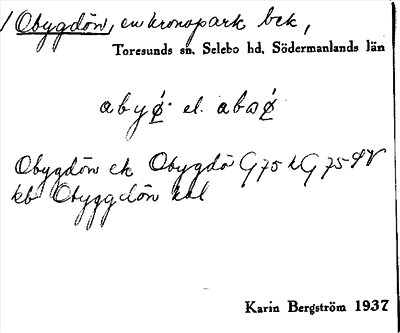 1 Obygdön, en kronopark bek,
Toresunds sn, Selebo hd, Södermanlands län
abyǿ· el. abøǿ
Obygdön ek Obygdö G 75 L G 75 SV
kb Obyggdön
Karin Bergström 1937